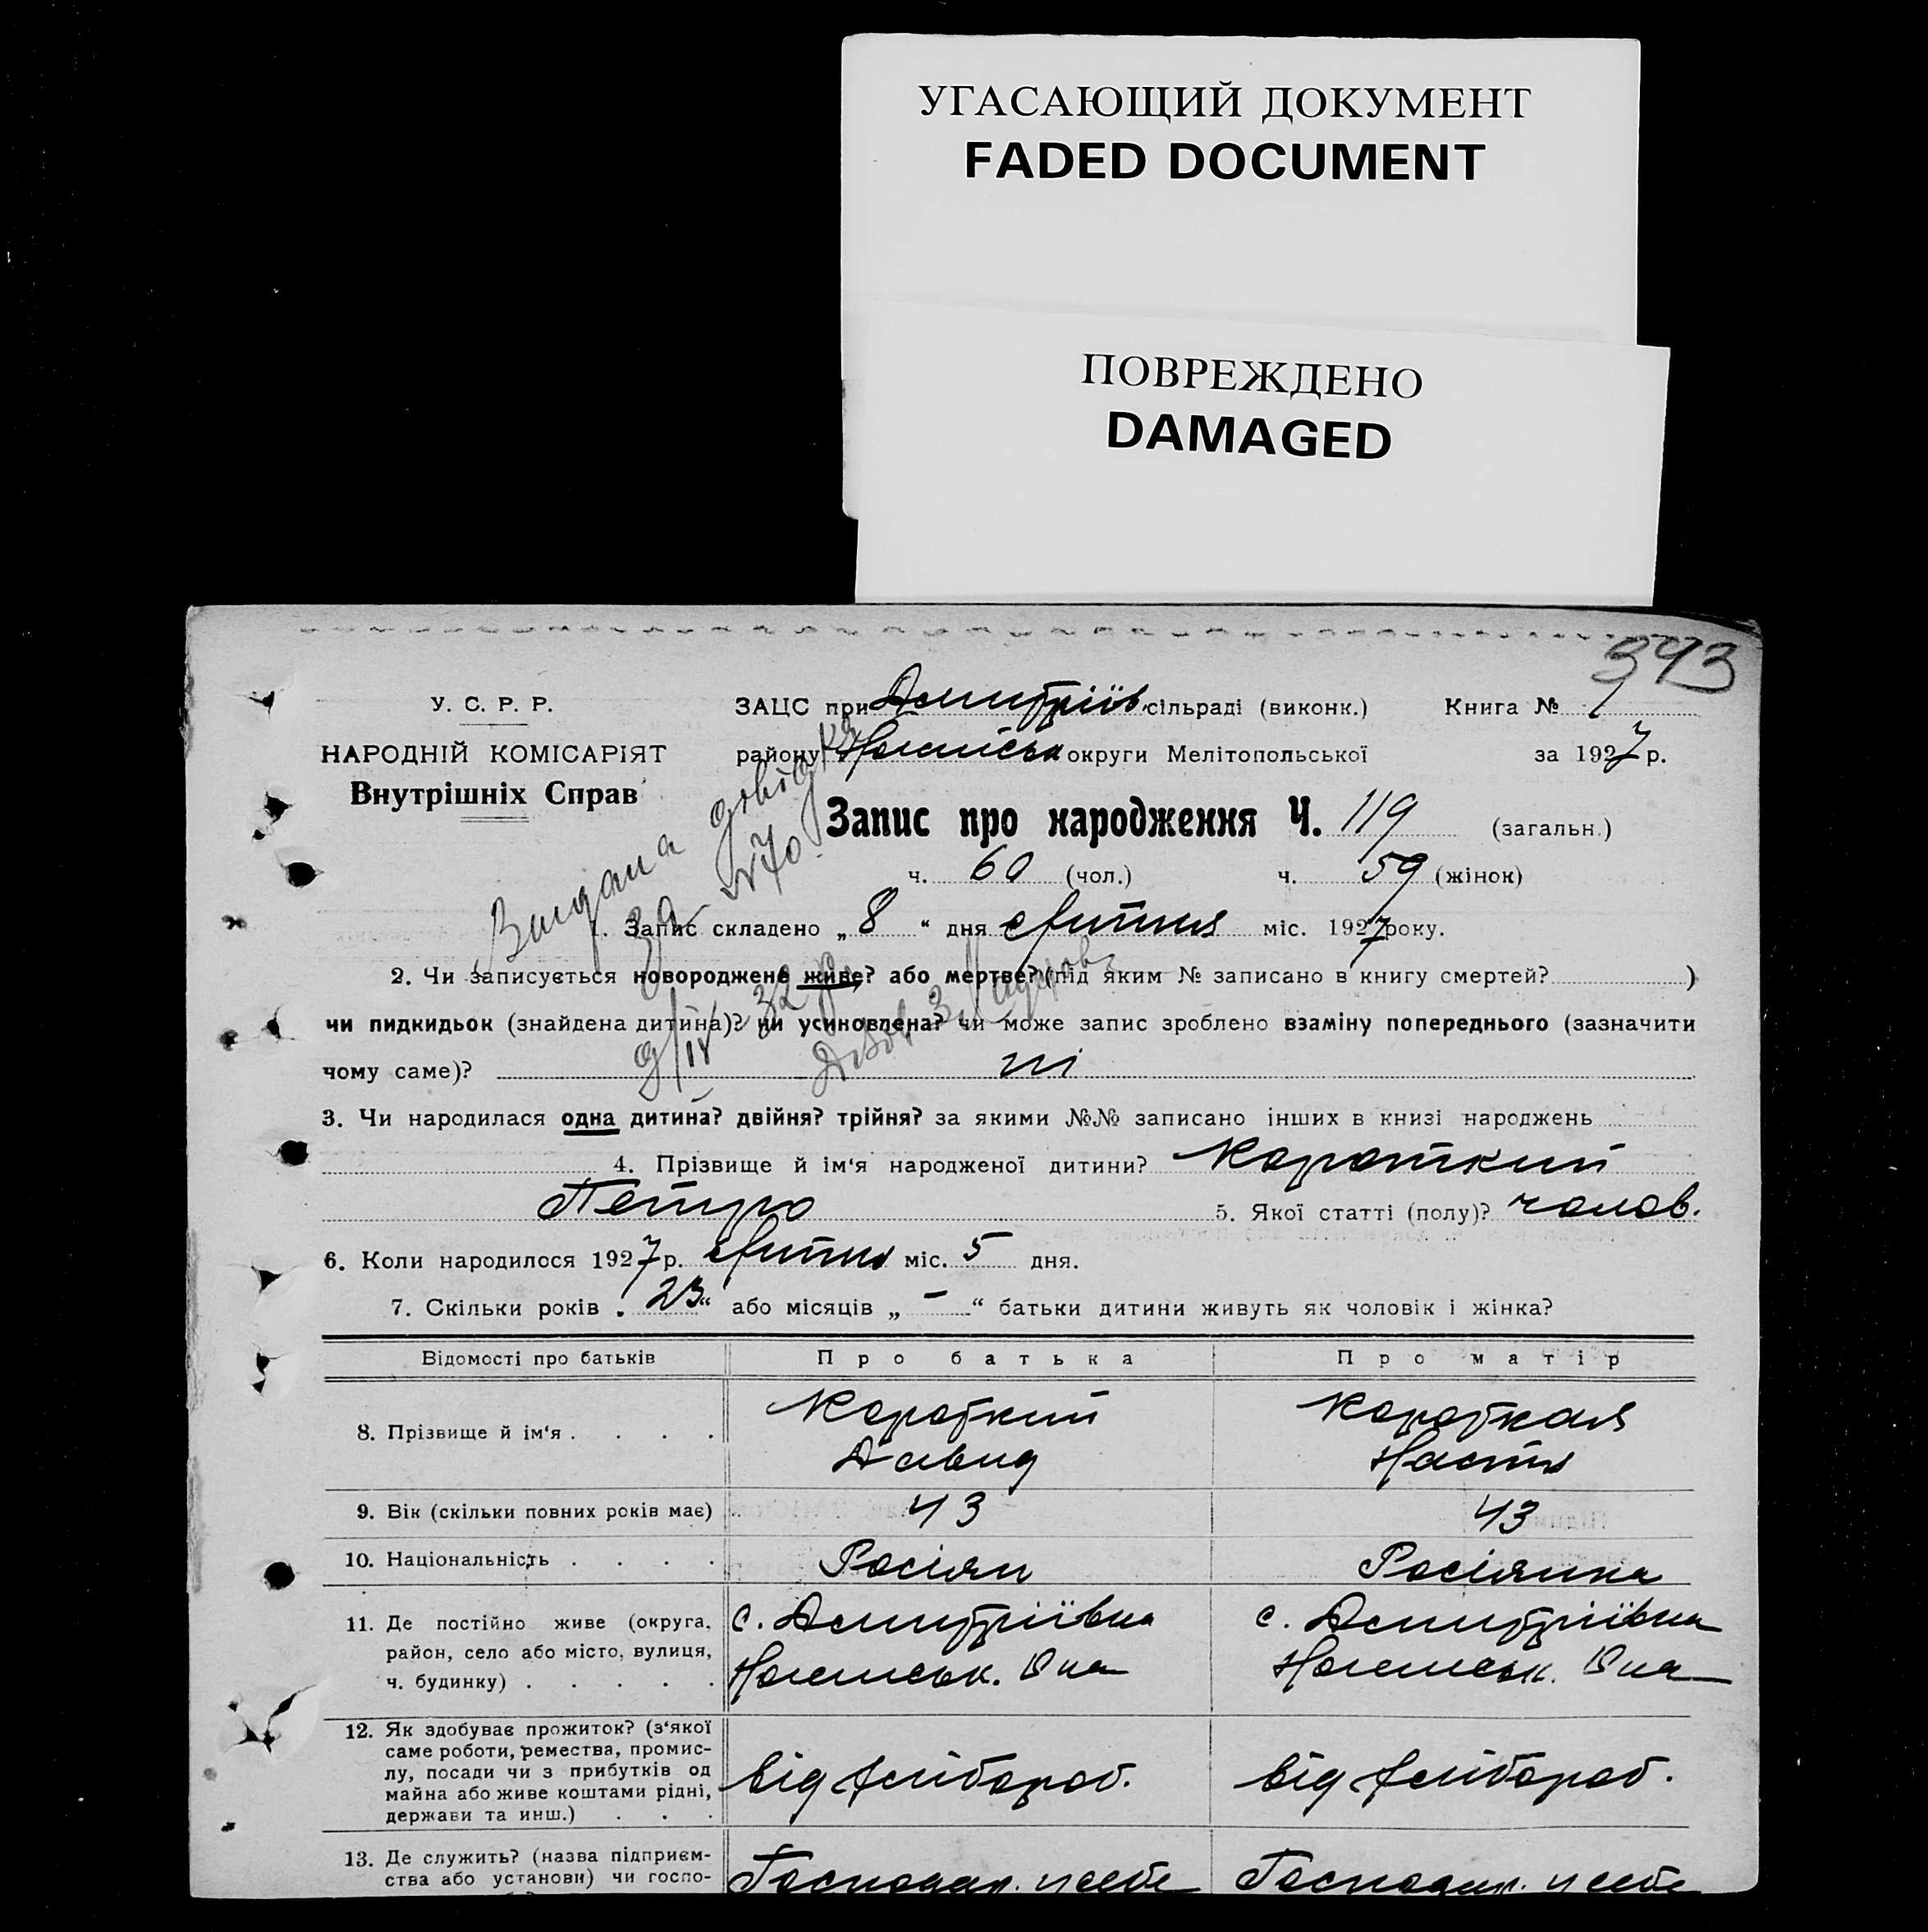 УГАСАЮЩИЙ ДОКУМЕНТ
FADED DOCUMENT
ПОВРЕЖДЕНО
DAMAGED
343
У. С. Р. Р.
НАРОДНІЙ КОМІСАРІЯТ
Внутрішніх Справ
ЗАЦС при Дмитріїв. сільраді (виконк.) Книга № 1
району округи Мелітопольської за 1927 р.
Видана довідка
за № 70.
9/IV 32 р.
Запис про народження Ч. 119 (загальн.)
ч. 60 (чол.) ч. 59 (жінок)
1. Запис складено „ 8 “ дня Липня міс. 1927 року.
2. Чи записується новороджене живе? або мертве? (під яким № записано в книгу смертей? )
чи пидкидьок (знайдена дитина)? чи усиновлена? чи може запис зроблено взаміну попереднього (зазначити
чому саме)? ні
3. Чи народилася одна дитина? двійня? трійня? за якими №№ записано інших в книзі народжень
4. Прізвище й ім‘я народженої дитини? Короткий
Петро 5. Якої статті (полу)? чолов.
6. Коли народилося 1927 р. Липня міс. 5 дня.
7. Скільки років „ 23 “ або місяців „ — “ батьки дитини живуть як чоловік і жінка?
Відомості про батьків Про батька Про матір
8. Прізвище й ім‘я . . . . Короткий Короткая
Давид Настя
9. Вік (скільки повних років має) 43 43
10. Національність . . . . Росіян Росіянка
11. Де постійно живе (округа, с. Дмитріївка с. Дмитріївка
район, село або місто, вулиця,
ч. будинку) . . . . .
12. Як здобуває прожиток? (з‘якої
саме роботи, ремества, промис-
лу, посади чи з прибутків од від хлібороб. від хлібороб.
майна або живе коштами рідні,
держави та инш.) . . .
13. Де служить? (назва підприєм-
ства або установи) чи госпо- Господар. у себе Господар. у себе